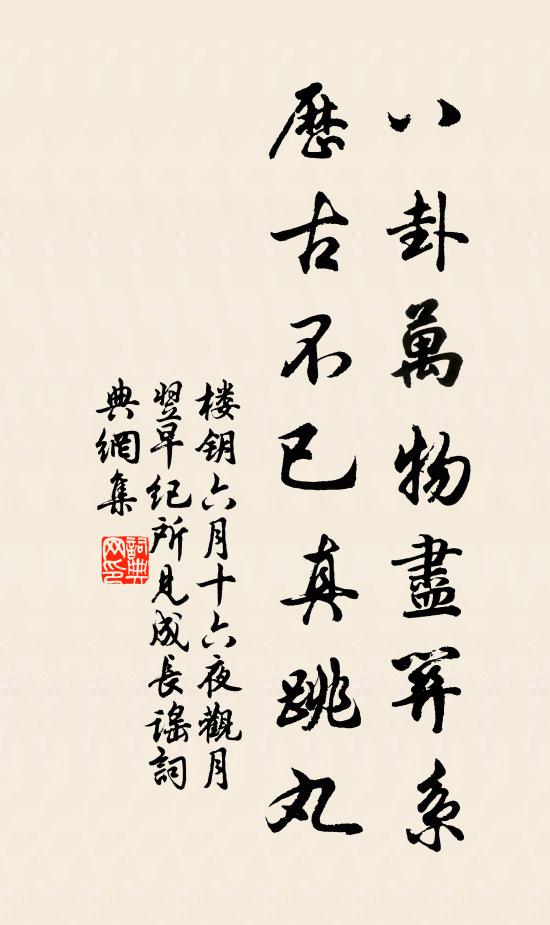 八卦萬物盡筭系
歷古不已真跳丸
楼钥六月十六夜觀月
翌早纪所見成長謡詞
典網集
詞典
网印